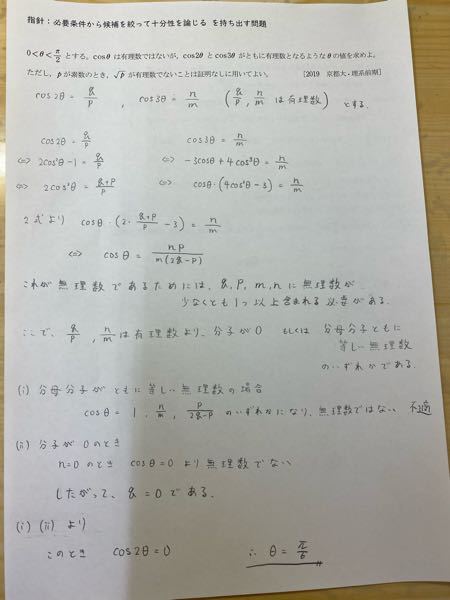 指針：必要条件から候補を絞って十分性を論じる を持ち出す問題
0<θ<π/2 とする。cosθ は有理数ではないが，cos2θ と cos3θ がともに有理数となるような θ の値を求めよ。
ただし，p が素数のとき，√p が有理数でないことは証明なしに用いてよい。 [2019 京都大・理系前期]
cos2θ = q/p , cos3θ = n/m (q/p, n/m は有理数) とする。
cos2θ = q/p cos3θ = n/m
⇔ 2cos²θ-1 = q/p ⇔ -3cosθ+4cos³θ = n/m
⇔ 2cos²θ = (q+p)/p ⇔ cosθ·(4cos²θ-3) = n/m
2式より cosθ·(2·(q+p)/p -3) = n/m
⇔ cosθ = np/m(2q-p)
これが無理数であるためには、q, p, m, nに無理数が
少なくとも1つ以上含まれる必要がある。
ここで、q/p, n/mは有理数より、分子が0 もしくは 分母分子ともに
等しい無理数
のいずれかである。
(i) 分母分子がともに等しい無理数の場合
cosθ = 1, n/m, p/(2q-p) のいずれかになり、無理数ではない 不適
(ii) 分子が0のとき
n=0のとき cosθ=0 より無理数でない
したがって、q=0である。
(i) (ii) より
このとき cos2θ=0 ∴ θ = π/6